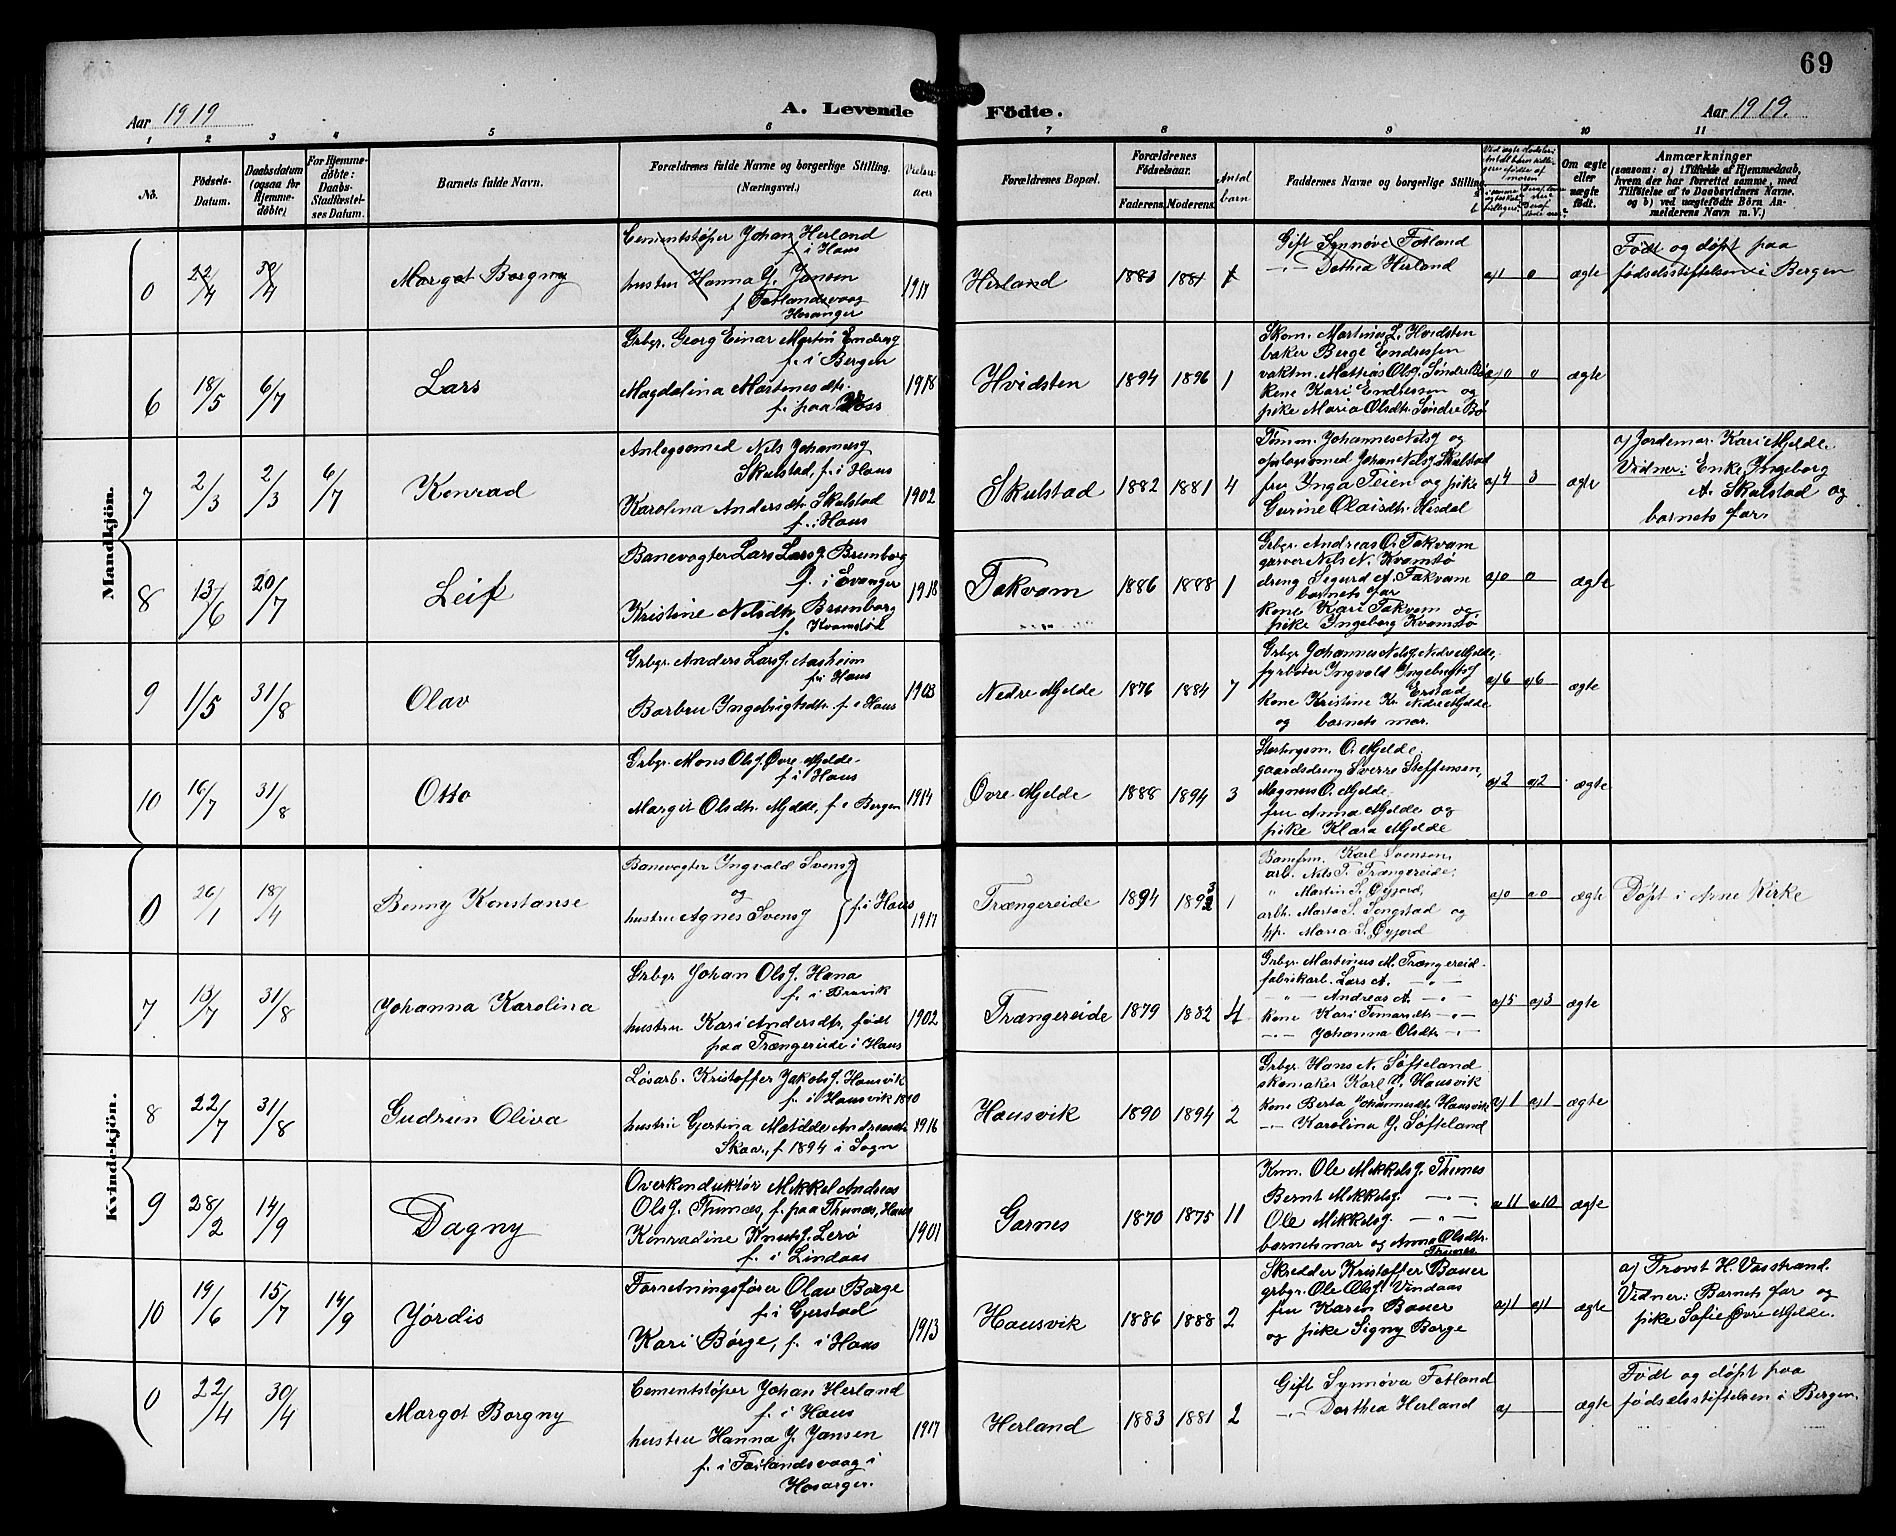 69
Aar 1919
A. Levende
Födte.
Aar 1919.
1 2 3 4 5 6 7 8 9 10 11
No.
Födsels-
Datum.
Daabsdatum
(ogsaa for
Hjemme-
döbte)
For Hjemme-
döbte:
Daabs-
Stadfæstel-
ses Datum.
Barnets fulde Navn.
Forældrenes fulde Navne og borgerlige Stilling.
(Næringsvei.)
Vielses-
aar
Forældrenes Bopæl.
Forældrenes
Födselsaar.
Faderens. Moderens.
Antal
barn
Faddernes Navne og borgerlige Stilling
Om ægte
eller
uægte
födt.
Anmærkninger
(saasom: a) i Tilfælde af Hjemmedaab,
hvem der har forrettet samme, med
Tilföielse af to Daabsvidners Navne,
og b) ved uægtefödte Börn An-
melderens Navn m. V.)
Mandkjön.
0 22/4 30/4 Margot Borgny
Cementstøper Johan Herland
f. i Haus
hustru Hanna J. Jansen
f. Fotlandsvaag
Hosanger
1917 Herland 1883 1881 1
Gift Synnøve Fotland
-"- Dothea Herland
a/1 0 ægte
Født og døpt paa
fødselsstiftelsen i Bergen
6 18/5 6/7 Lars
Grbgr. Georg Einar Martin Endresg
f. i Bergen
Magdalina Martinesdtr.
f. paa Voss
1918 Hvidsten 1894 1896 1
Skom. Martines L. Hvidsten
baker Berge Endressen
vaktm. Mathias Olsg. Søndre Bø
kone Kari Endressen og
pike Maria Olsdtr. Søndre Bø
a/0 0 ægte
7 2/3 2/3 6/7 Konrad
Anlegsomed Nils Johannesg
Skulstad, f. i Haus
Karolina Andersdtr. Skulstad
f. i Haus
1902 Skulstad 1882 1881 4
Tømm. Johannes Nelsg og
Johan Nelsg. Skulstad
fru Inga Teien og pike
Gurine Olaisdtr. Hisdal
a/4 3 ægte
a) Jordemor Kari Mjelde.
Vidner: Enke Ingeborg
A. Skulstad og
barnets far.
8 13/6 20/7 Leif
Banevogter Lars Larsg. Brunborg
f. i Evanger
Kristine Nelsdtr. Brunborg
f. Kvamstød
1918 Takvam 1886 1888 1
Grbgr. Andreas O. Takvam
garver Nils N. Kvamstø
dreng Sigurd A. Takvam
barnets far
kone Kari Takvam og
pike Ingeborg Kvamstø
a/0 0 ægte
9 1/5 31/8 Olav
Grbgr. Anders Larsg. Aasheim
f. i Haus
Barbru Ingebrigtsdtr. f. i Haus
1903 Nedre Mjelde 1876 1884 7
Grbgr Johannes Nelsg Nedre Mjelde,
fyrbøter Ingvald Ingebrigtsg
Erstad
kone Kristine Kr. Nedre Mjelde
og barnets mor.
a/6 a/6 ægte
10 16/7 31/8 Otto
Grbgr. Mons Olsg. Øvre Mjelde
f. i Haus
Margit Olsdtr. Mjelde, f. i Bergen
1914 Øvre Mjelde 1888 1894 3
Stortingsm. O. Mjelde.
gaardsdreng Sverre Steffensen,
Magnus O. Mjelde.
fru Anna Mjelde og
pike Klara Mjelde
a/2 a/2 ægte
Kvindekjön.
0 26/1 18/4 Benny Konstanse
Banevogter Ingvald Svensg
og
hustru Agnes Svensg
f. i Haus
1917 Trængereide 1894 1893 1
Banefm. Karl Svensen,
arb. Nils T. Trængereide,
" Martin S. Øyjord,
arb. Marta S. Songstad og
Maria S. Øyjord
a/0 a/0 ægte
Døpt i Arne Kirke
7 13/7 31/8 Johanna Karolina
Grbgr Johan Olsg. Hana
f. i Bruvik
hustru Kari Andersdtr. født
paa Trængereide i Haus
1902 Trængereide 1879 1882 4
Grbgr. Martinus M. Trængereid
fabrikarb. Lars A. -"-
-"- Andreas A. -"-
kone Kari Tomasdtr -"-
-"- Johanna Olsdtr -"-
a/5 a/3 ægte
8 22/7 31/8 Gudrun Oliva
Løsarb. Kristoffer Jakobsg. Hausvik
f. i Hausvik 1890
hustru Gjertina Matilde Andreasdtr.
Skaar, f. 1894 i Sogn
1916 Hausvik 1890 1894 2
Grbgr. Hans N. Søfteland
skomaker Karl J. Hausvik
kone Berta Johannesdtr Hausvik
-"- Karolina J. Søfteland
a/1 a/1 ægte
9 28/2 14/9 Dagny
Overkonduktør Mikkel Andreas
Olsg. Thunæs, f. paa Thunæs, Haus
Konradine Knutsg. Lerø
f. i Lindaas
1901 Garnes 1870 1875 11
Knm. Ole Mikkelsg. Thunes
Bernt Mikkelsg. -"-
Ole Mikkelsg. -"-
barnets mor og Anna Olsdtr.
Trunes
a/11 a/10 ægte
10 19/6 15/7 14/9 Yørdis
Forretningsfører Olav Borge
f. i Gjerstad
Kari Børge, f. i Haus
1913 Hausvik 1886 1888 2
Skredder Kristoffer Bauer
grbgr. Ole Olsg. Vindaas
fru Karen Bauer
og pike Signy Borge
a/1 a/1 ægte
a) Provst H. Vasstrand.
Vidner: Barnets far og
pike Sofie Øvre Mjelde.
0 22/4 30/4 Margot Borgny
Cementstøper Johan Herland
f. i Haus
hustru Hanna J. Jansen
f. i Fotlandsvaag i
Hosanger.
1917 Herland 1883 1881 2
Gift Synnøva Fotland
-"- Dorthea Herland
a/ ægte
Født og døpt paa
fødselsstiftelsen i Bergen.